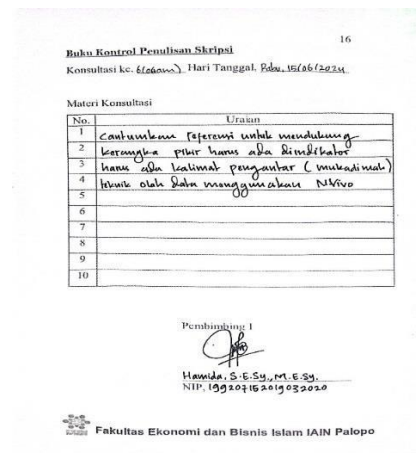 16
Buku Kontrol Penulisan Skripsi
Konsultasi ke. 6(enam) Hari Tanggal, Rabu, 15/06/2024
Materi Konsultasi
No. Uraian
1 cantumkan referensi untuk mendukung
2 kerangka pikir harus ada diindikator
3 harus ada kalimat pengantar (mukadimah)
4 teknik olah data menggunakan NVivo
5
6
7
8
9
10
Pembimbing I
Hamida, S.E.Sy., M.E.Sy.
NIP. 199207152019032020
Fakultas Ekonomi dan Bisnis Islam IAIN Palopo